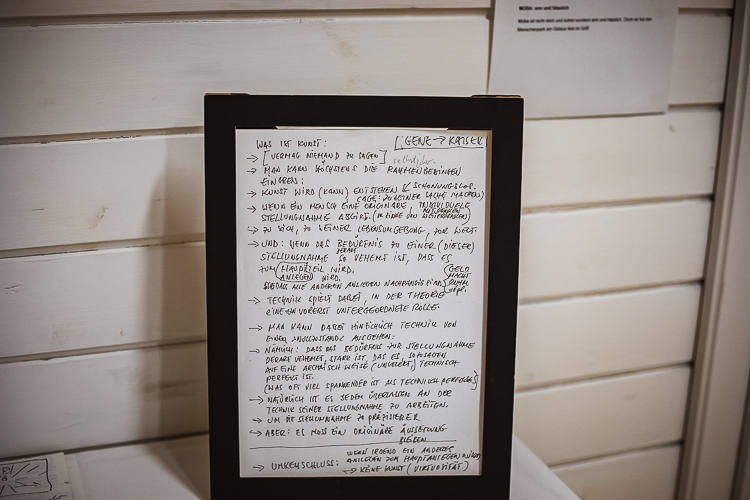 MOBA: arm und hässlich
Moba ist nicht reich und schön sondern arm und hässlich. Doch es hat den
Menschenpark am Globus fest im Griff.
WAS IST KUNST:
[GENZ → KAISER]
→ [VERMAG NIEMAND ZU SAGEN]
→ MAN KANN HÖCHSTENS DIE RAHMENBEDINGEN
EINGREN:
→ KUNST WIRD (KANN) ENTSTEHEN
SCHONUNGSLOS.
CAGE: ZU EINER SACHE MACHEN)
→ WENN EIN MENSCH EINE ORIGINÄRE, INDIVIDUELLE
STELLUNGNAHME ABGIBT.
→ ZU SICH, ZU SEINER LEBENSUMGEBUNG, ZUR WELT.
→ UND: WENN DAS BEDÜRFNIS ZU EINER (DIESER)
STELLUNGNAHME SO VEHEMT IST, DASS ES
ZUM HAUPTTEIL WIRD.
ANLIEGEN WIRD.
SODASS ALLE ANDEREN ANLIEGEN NACHRANGIG SIND.
(GELD
MACHT
RUHM
→ TECHNIK SPIELT DABEI, IN DER THEORIE
EINE VORERST UNTERGEORDNETE ROLLE.
→ MAN KANN DABEI HINSICHLICH TECHNIK VON
EINEM NULLZUSTANDE AUSGEHEN:
→ NÄMLICH: DASS DAS BEDÜRFNIS ZUR STELLUNGNAHME
DERART VEHEMET, STARK IST, DAS ES, SOZUSAGEN
AUF EINE ARCHAISCH WEISE (UNGELERNT) TECHNISCH
PERFEKT IST.
(WAS OFT VIEL SPANNENDER IST ALS TECHNISCH PERFEKTES)
→ NATÜRLICH IST ES JEDEM ÜBERLASSEN AN DER
TECHNIK SEINER STELLUNGNAHME ZU ARBEITEN.
→ UM DIE STELLUNGNAHME ZU PRÄZISIEREN
→ ABER: ES MUSS EIN ORIGINÄRE ÄUSSERUNG
BLEIBEN
→ UMKEHSCHLUSS: WENN IRGEND EIN ANDERES
ANLIEGEN ZUM HAUPTANLIEGEN WIRD
→ KEINE KUNST (VIRTUOSITÄT)